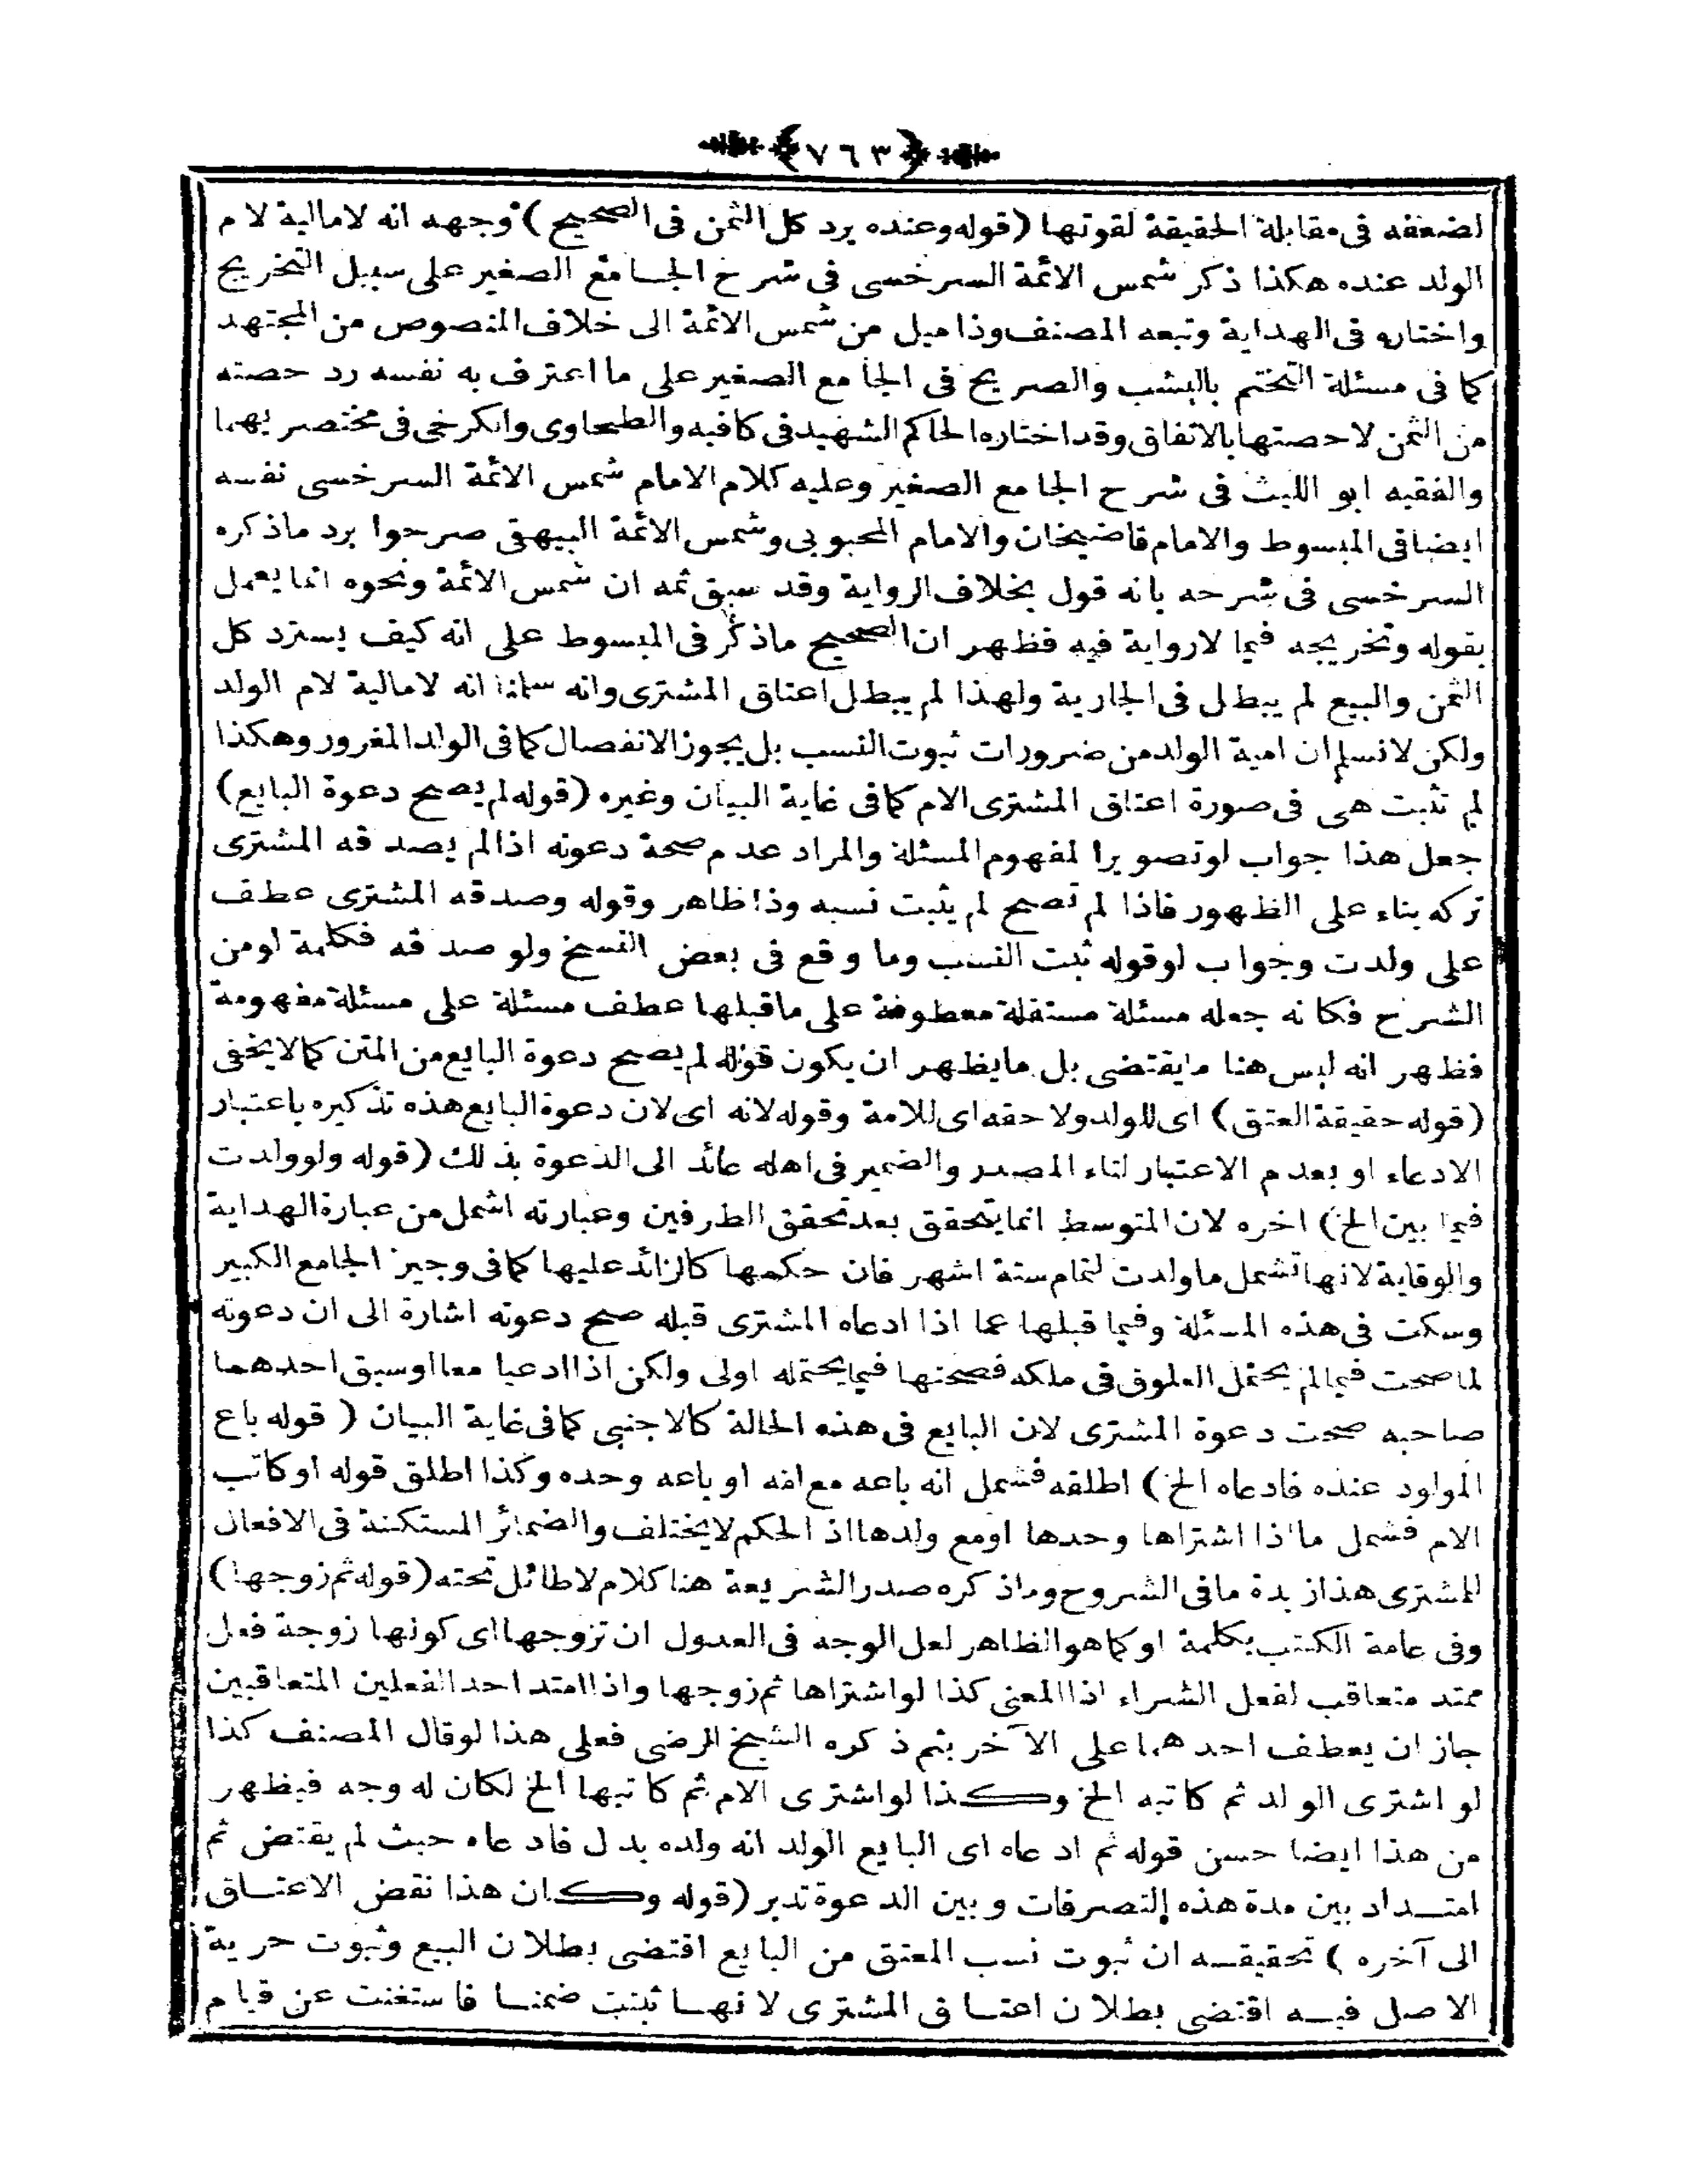 ﴿٧٦٣﴾
لضعفه فى مقابلة الحقيقة لقوتها (قوله وعنده يرد كل الثمن فى الصحيح) وجهه انه لا مالية لام
الولد عنده هكذا ذكر شمس الائمة السرخسى فى شرح الجامع الصغير على سبيل التخريج
واختاره فى الهداية وتبعه المصنف وذا ميل من شمس الائمة الى خلاف المنصوص من المجتهد
كما فى مسئلة التختم باليشب والصريح فى الجامع الصغير على ما اعترف به نفسه رد حصته
من الثمن لا حصتها بالاتفاق وقد اختاره الحاكم الشهيد فى كافيه والطحاوى والكرخى فى مختصريهما
والفقيه ابو الليث فى شرح الجامع الصغير وعليه كلام الامام شمس الائمة السرخسى نفسه
ايضا فى المبسوط والامام قاضيخان والامام المحبوبى وشمس الائمة البيهقى صرحوا برد ما ذكره
السرخسى فى شرحه بانه قول بخلاف الرواية وقد سبق ثمه ان شمس الائمة ونحوه انما يعمل
بقوله وتخريجه فيما لا رواية فيه فظهر ان الصحيح ما ذكر فى المبسوط على انه كيف يسترد كل
الثمن والبيع لم يبطل فى الجارية ولهذا لم يبطل اعتاق المشترى وانه سلمنا انه لا مالية لام الولد
ولكن لا نسلم ان امية الولد من ضرورات ثبوت النسب بل يجوز الانفصال كما فى الولد المغرور وهكذا
لم تثبت هى فى صورة اعتاق المشترى الام كما فى غاية البيان وغيره (قوله لم يصح دعوة البايع)
جعل هذا جواب لو تصويرا لمفهوم المسئلة والمراد عدم صحة دعوته اذا لم يصدقه المشترى
تركه بناء على الظهور فاذا لم تصح لم يثبت نسبه وذا ظاهر وقوله وصدقه المشترى عطف
على ولدت وجواب لو قوله ثبت النسب وما وقع فى بعض النسخ ولو صدقه فكلمة لو من
الشرح فكانه جعله مسئلة مستقلة معطوفة على ما قبلها عطف مسئلة على مسئلة مفهومة
فظهر انه ليس هنا ما يقتضى بل ما يظهر ان يكون قوله لم يصح دعوة البايع من المتن كما لا يخفى
(قوله حقيقة العتق) اى للولد ولا حقه اى للامة وقوله لانه اى لان دعوة البايع هذه تذكيره باعتبار
الادعاء او بعدم الاعتبار لتاء المصدر والضمير فى اهله عائد الى الدعوة بذلك (قوله ولو ولدت
فيما بين الخ) اخره لان المتوسط انما يتحقق بعد تحقق الطرفين وعبارته اشمل من عبارة الهداية
والوقاية لانها تشمل ما ولدت لتمام ستة اشهر فان حكمها كالزائد عليها كما فى وجيز الجامع الكبير
وسكت فى هذه المسئلة وفيما قبلها عما اذا ادعاه المشترى قبله صح دعوته اشارة الى ان دعوته
لما صحت فيما لم يحتمل العلوق فى ملكه فصحتها فيما يحتمله اولى ولكن اذا ادعيا معا او سبق احدهما
صاحبه صحت دعوة المشترى لان البايع فى هذه الحالة كالاجنبى كما فى غاية البيان (قوله باع
المولود عنده فادعاه الخ) اطلقه فشمل انه باعه مع امه او باعه وحده وكذا اطلق قوله او كاتب
الام فشمل ما اذا اشتراها وحدها او مع ولدها اذ الحكم لا يختلف والضمائر المستكنة فى الافعال
للمشترى هذا زبدة ما فى الشروح وما ذكره صدر الشريعة هنا كلام لا طائل تحته (قوله ثم زوجها)
وفى عامة الكتب بكلمة او كما هو الظاهر لعل الوجه فى العدول ان تزوجها اى كونها زوجة فعل
ممتد متعاقب لفعل الشراء اذ المعنى كذا لو اشتراها ثم زوجها واذا امتد احد الفعلين المتعاقبين
جاز ان يعطف احدهما على الآخر بثم ذكره الشيخ الرضى فعلى هذا لو قال المصنف كذا
لو اشترى الولد ثم كاتبه الخ وكذا لو اشترى الام ثم كاتبها الخ لكان له وجه فيظهر
من هذا ايضا حسن قوله ثم ادعاه اى البايع الولد انه ولده بدل فادعاه حيث لم يقتض ثم
امتداد بين مدة هذه التصرفات وبين الدعوة تدبر (قوله وكان هذا نقض الاعتاق
الى آخره) تحقيقه ان ثبوت نسب المعتق من البايع اقتضى بطلان البيع وثبوت حرية
الاصل فيه اقتضى بطلان اعتاق المشترى لانها ثبتت ضمنا فاستغنت عن قيام